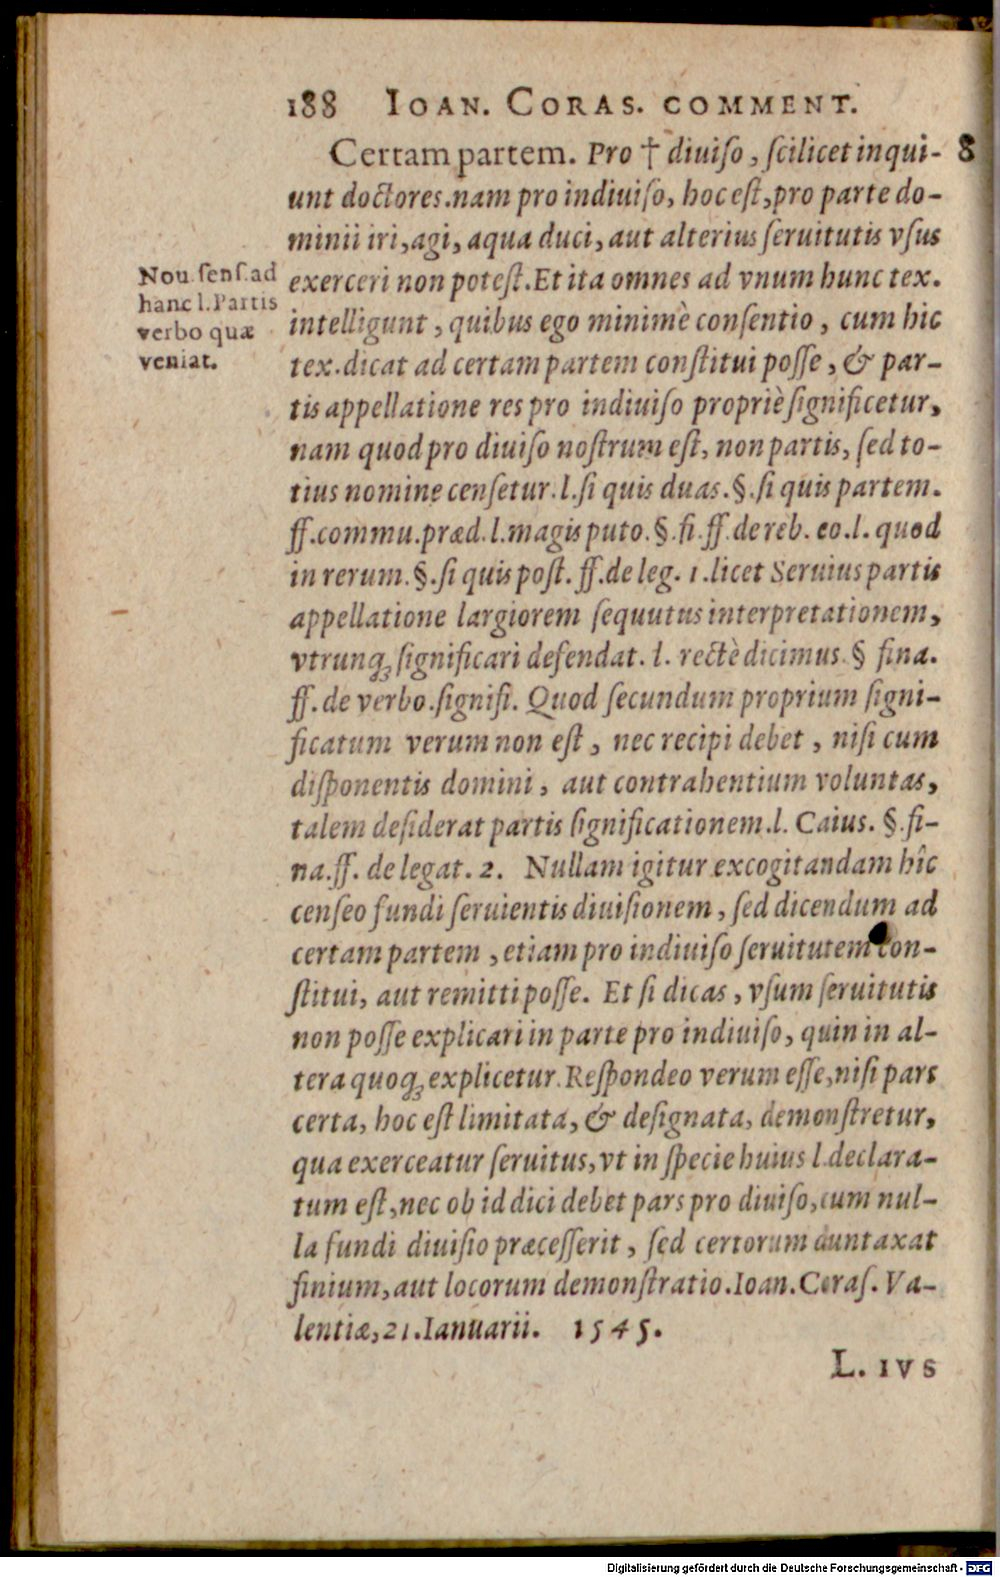 188 IOAN. CORAS. COMMENT.
Certam partem. Pro † diuiſo, ſcilicet inqui- 8
unt doctores. nam pro indiuiſo, hoc eſt, pro parte do-
minii iri, agi, aqua duci, aut alterius ſeruitutis vſus
exerceri non poteſt. Et ita omnes ad vnum hunc tex.
intelligunt, quibus ego minimè conſentio, cum hic
tex. dicat ad certam partem conſtitui poſſe, & par-
tis appellatione res pro indiuiſo propriè ſignificetur,
nam quod pro diuiſo noſtrum eſt, non partis, ſed to-
tius nomine cenſetur. l. ſi quis duas. §. ſi quis partem.
ff. commu. præd. l. magis puto. §. fi. ff. de reb. eo. l. quod
in rerum. §. ſi quis poſt. ff. de leg. 1. licet Seruius partis
appellatione largiorem ſequutus interpretationem,
vtrunq; ſignificari defendat. l. rectè dicimus. § fina.
ff. de verbo. ſignifi. Quod ſecundum proprium ſigni-
ficatum verum non eſt, nec recipi debet, niſi cum
diſponentis domini, aut contrahentium voluntas,
talem deſiderat partis ſignificationem. l. Caius. §. fi-
na. ff. de legat. 2. Nullam igitur excogitandam hîc
cenſeo fundi ſeruientis diuiſionem, ſed dicendum ad
certam partem, etiam pro indiuiſo ſeruitutem con-
ſtitui, aut remitti poſſe. Et ſi dicas, vſum ſeruitutis
non poſſe explicari in parte pro indiuiſo, quin in al-
tera quoq; explicetur. Reſpondeo verum eſſe, niſi pars
certa, hoc eſt limitata, & deſignata, demonſtretur,
qua exerceatur ſeruitus, vt in ſpecie huius l. declara-
tum eſt, nec ob id dici debet pars pro diuiſo, cum nul-
la fundi diuiſio præceſſerit, ſed certorum duntaxat
finium, aut locorum demonſtratio. Ioan. Coraſ. Va-
lentiæ, 21. Ianuarii. 1545.
L. IVS
Nou. ſenſ. ad
hanc l. Partis
verbo quæ
veniat.
Digitalisierung gefördert durch die Deutsche Forschungsgemeinschaft - DFG